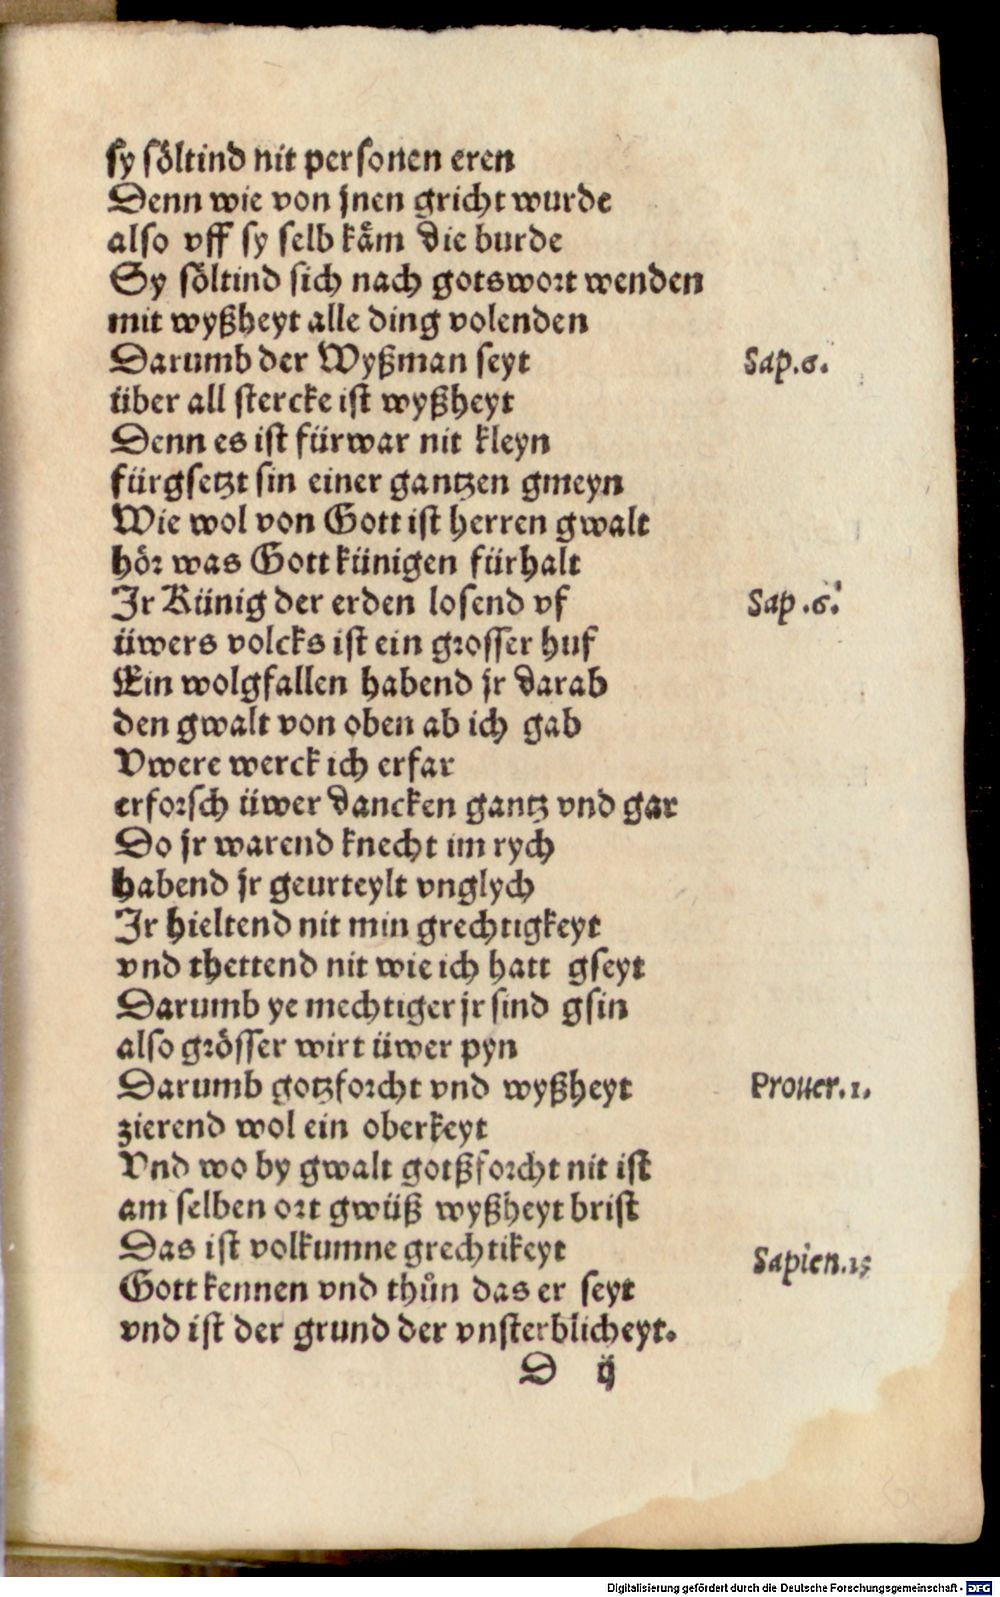 sy söltind nit personen eren
Denn wie von jnen gricht wurde
also vff sy selb käm die burde
Sy söltind sich nach gotswort wenden
mit wyßheyt alle ding volenden
Darumb der Wyßman seyt Sap.6.
über all stercke ist wyßheyt
Denn es ist fürwar nit kleyn
fürgsetzt sin einer gantzen gmeyn
Wie wol von Gott ist herren gwalt
hör was Gott künigen fürhalt
Ir Künig der erden losend vf Sap.6.
üwers volcks ist ein grosser huf
Ein wolgfallen habend jr darab
den gwalt von oben ab ich gab
Vwere werck ich erfar
erforsch üwer dancken gantz vnd gar
Do jr warend knecht im rych
habend jr geurteylt vnglych
Ir hieltend nit min grechtigkeyt
vnd thettend nit wie ich hatt gseyt
Darumb ye mechtiger jr sind gsin
also grösser wirt üwer pyn
Darumb gotzforcht vnd wyßheyt Prouer.1.
zierend wol ein oberkeyt
Vnd wo by gwalt gotßforcht nit ist
am selben ort gwüß wyßheyt brist
Das ist volkumne grechtikeyt Sapien.15
Gott kennen vnd thůn das er seyt
vnd ist der grund der vnsterblicheyt.
D ij
Digitalisierung gefördert durch die Deutsche Forschungsgemeinschaft - DFG